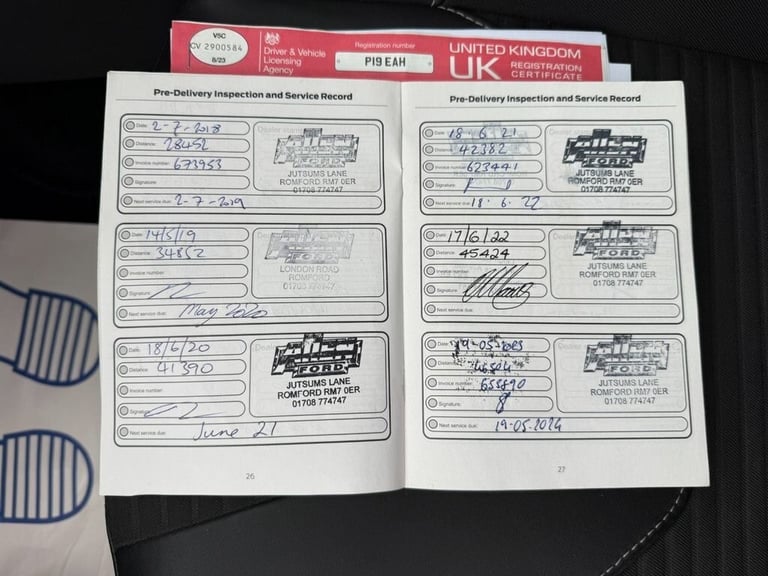 V5C
CV 2900584
8/23
Driver & Vehicle
Licensing
Agency
Registration number
P19 EAH
UNITED KINGDOM
UK REGISTRATION
CERTIFICATE
Pre-Delivery Inspection and Service Record
Date: 2-7-2018
Distance: 28452
Invoice number: 673953
Signature:
Next service due: 2-7-2019
FORD
JUTSUMS LANE
ROMFORD RM7 0ER
01708 774747
Date: 14/5/19
Distance: 34852
Invoice number:
Signature:
Next service due: May 2020
LONDON ROAD
ROMFORD
01708 774747
Date: 18/6/20
Distance: 41390
Invoice number:
Signature:
Next service due: June 21
FORD
JUTSUMS LANE
ROMFORD RM7 0ER
01708 774747
26
Pre-Delivery Inspection and Service Record
Date: 18.6.21
Distance: 42382
Invoice number: 623441
Signature:
Next service due: 18.6.22
FORD
JUTSUMS LANE
ROMFORD RM7 0ER
01708 774747
Date: 17/6/22
Distance: 45424
Invoice number:
Signature:
Next service due:
FORD
JUTSUMS LANE
ROMFORD RM7 0ER
01708 774747
Date: 19-05-2023
Distance:
Invoice number:
Signature:
Next service due: 19.05.2024
FORD
JUTSUMS LANE
ROMFORD RM7 0ER
01708 774747
27